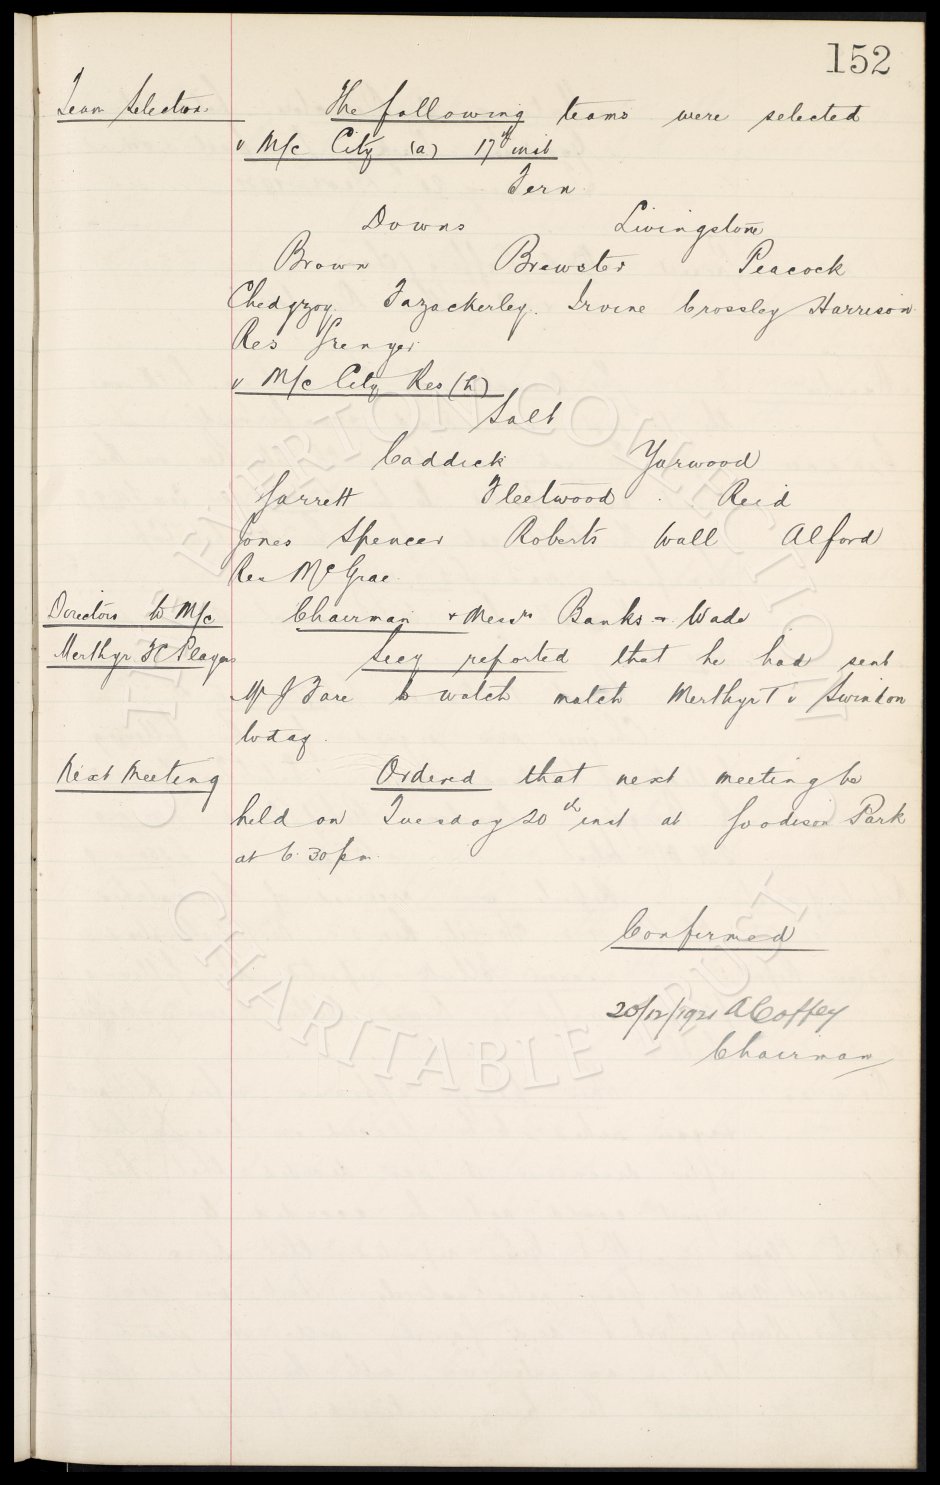 152
Team Selection The following teams were selected
v M/c City (a) 17th inst
Fern
Downs Livingstone
Brown Brewster Peacock
Chedgzoy Fazackerley. Irvine Crossley Harrison
Res Grenyer
v M/c City Res (h)
Salt
Caddick Yarwood
Garrett Fleetwood Reid
Jones Spencer Roberts Wall Alford
Res McGrae
Directors to M/c Chairman & Messrs Banks & Wade
Merthyr FC Players Secy reported that he had sent
Mr J Fare to watch match Merthyr T v Swindon
today.
Next Meeting Ordered that next meeting be
held on Tuesday 20th inst at Goodison Park
at 6.30 pm.
Confirmed
20/12/1921 A Coffey
Chairman
THE EVERTON COLLECTION
CHARITABLE TRUST